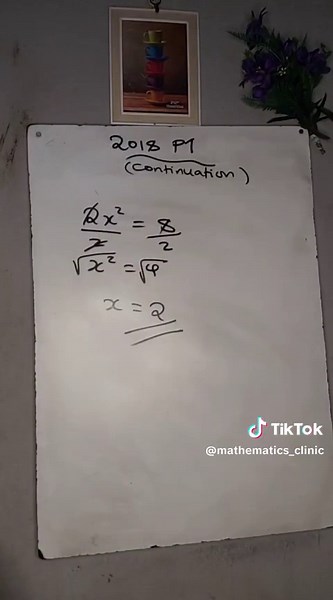 2018 P1
(continuation)
2x² = 8
2 2
√x² = √4
x = 2
TikTok
@mathematics_clinic